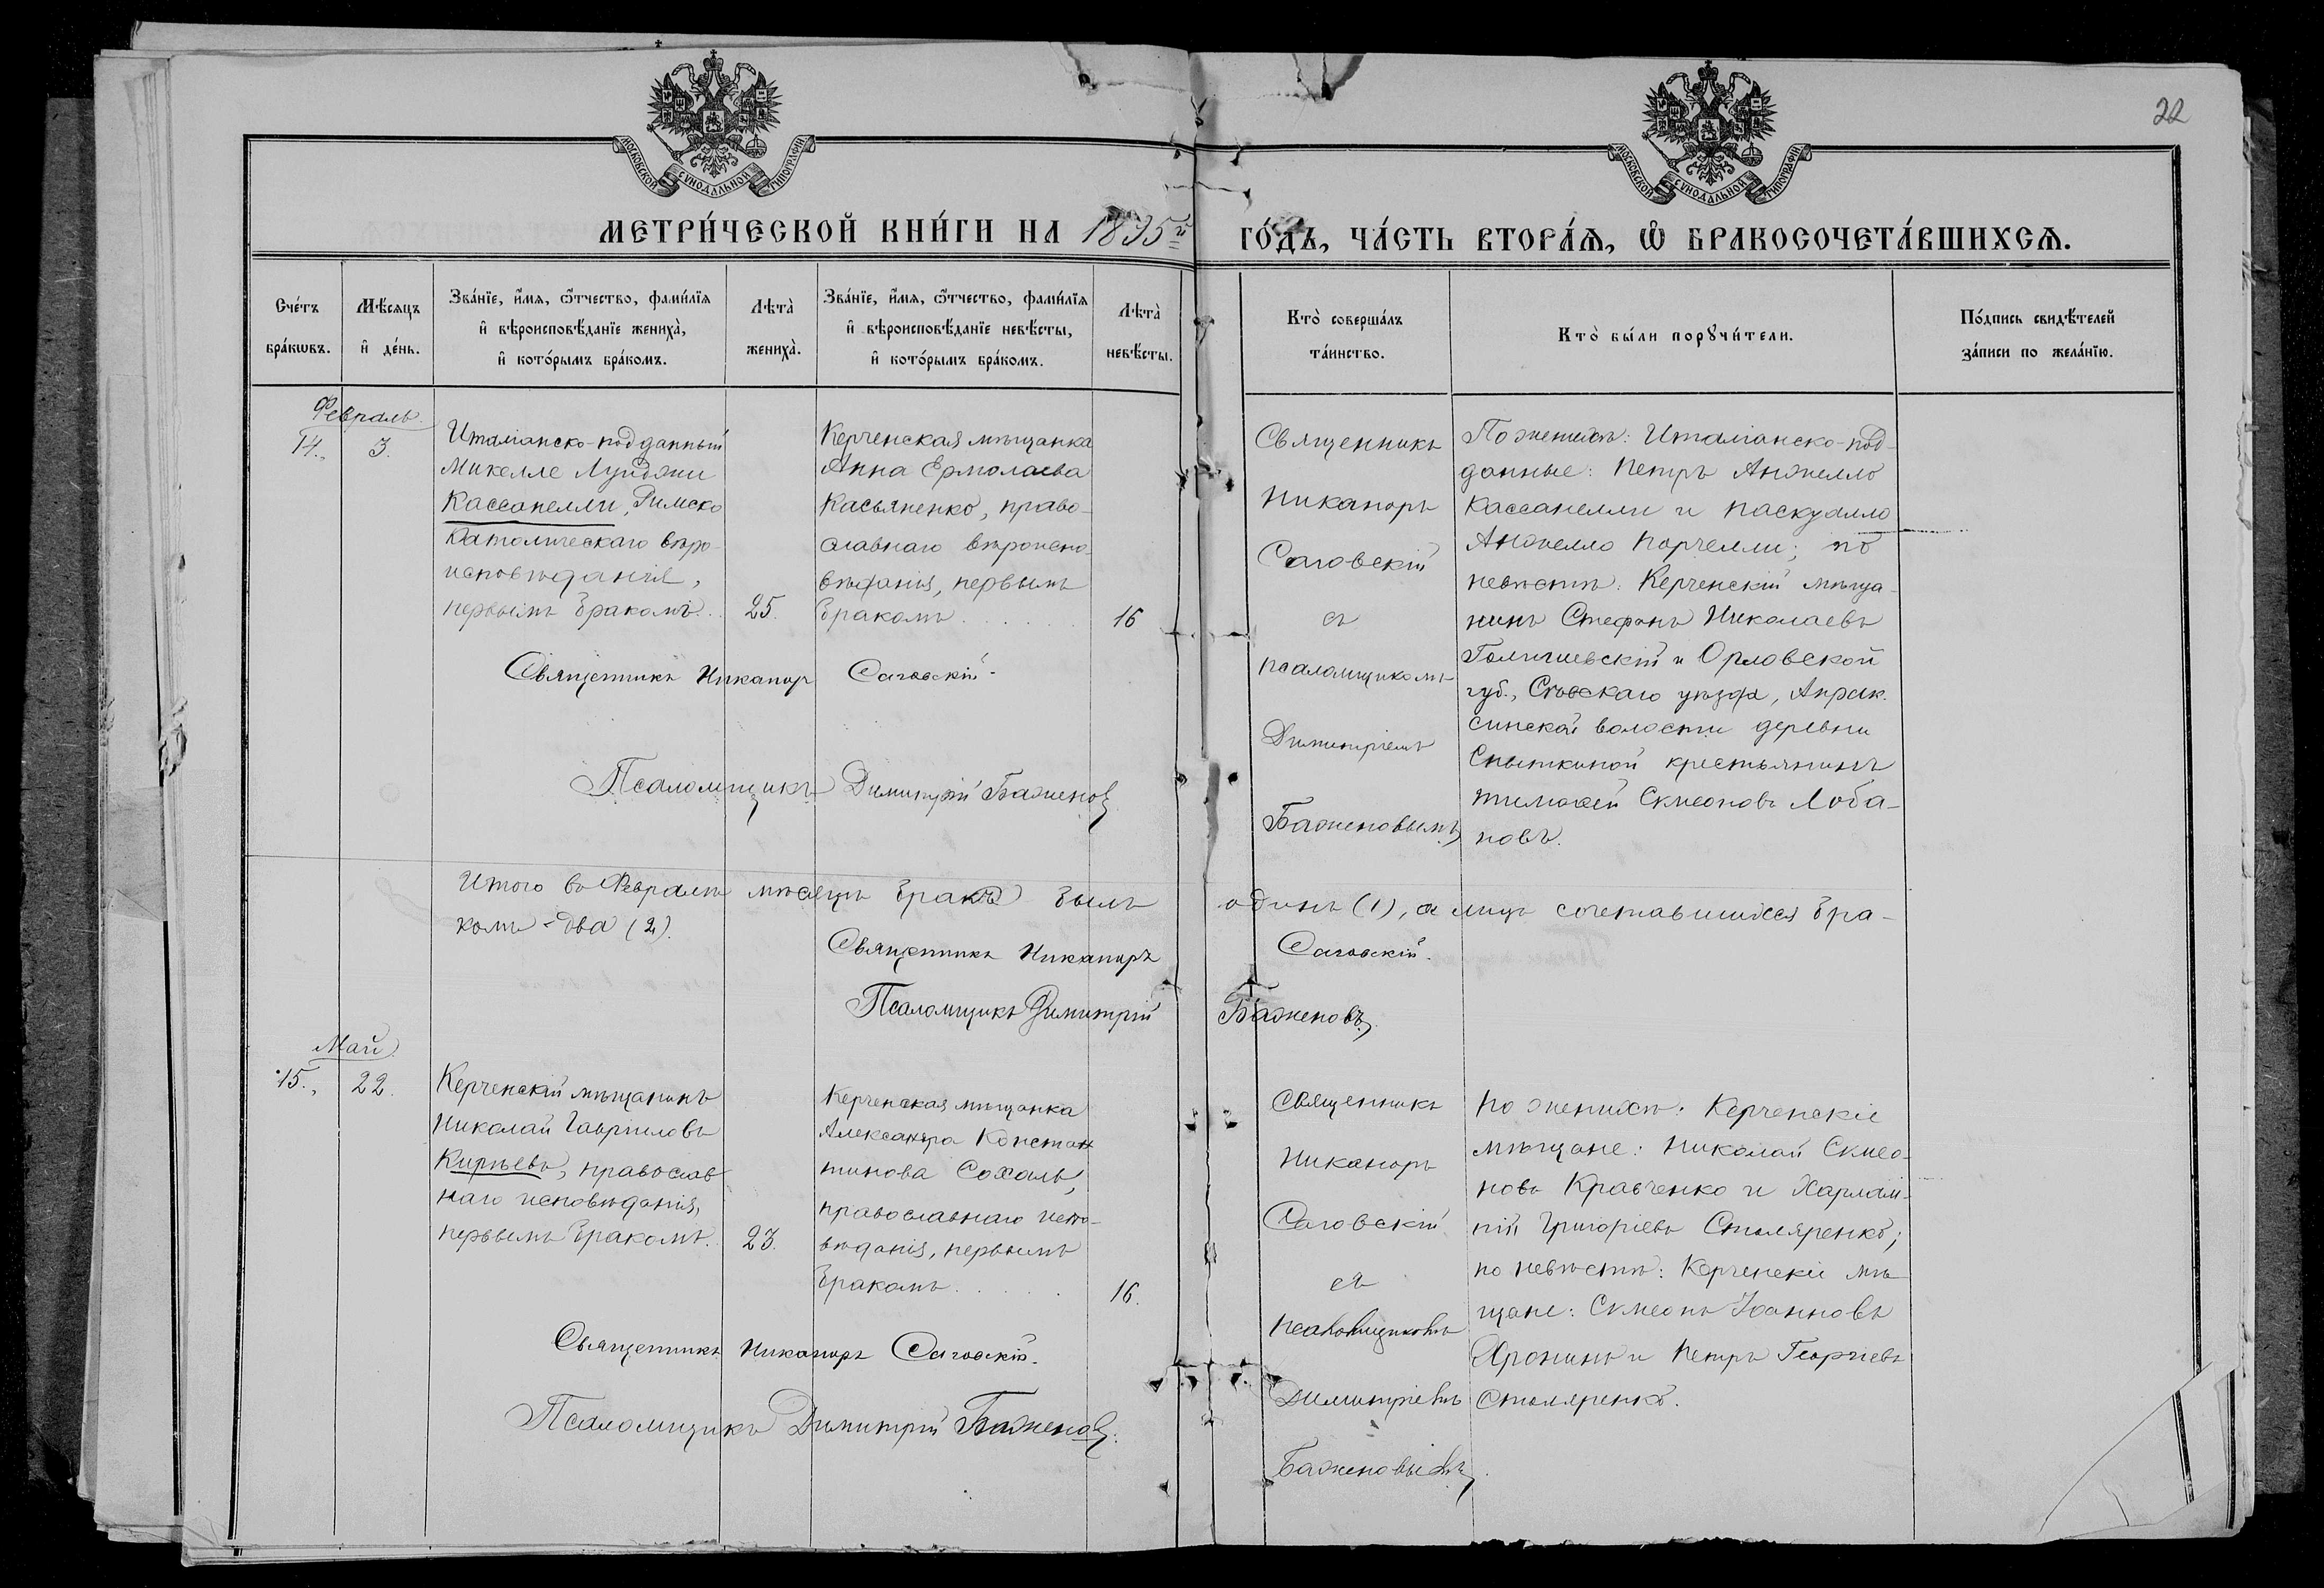 22
МОСКОВСКОЙ СѴНОДАЛЬНОЙ ТИПОГРАФІИ
МОСКОВСКОЙ СѴНОДАЛЬНОЙ ТИПОГРАФІИ
МЕТРИ́ЧЕСКОЙ КНИ́ГИ НА 1895й ГО́ДЪ, ЧА́СТЬ ВТОРА́Ѧ, Ѽ БРАКОСОЧЕТА́ВШИХСѦ.
Сче́тъ
бра́кѡвъ.
Мѣ́сѧцъ
и҆ де́нь.
Зва́нїе, и҆́мѧ, ѻ҆́тчество, фами́лїѧ
и҆ вѣроисповѣ́данїе жениха̀,
и҆ кото́рымъ бра́комъ.
Лѣта̀
жениха̀.
Зва́нїе, и҆́мѧ, ѻ҆́тчество, фами́лїѧ
и҆ вѣроисповѣ́данїе невѣ́сты,
и҆ кото́рымъ бра́комъ.
Лѣта̀
невѣ́сты.
Кто̀ соверша́лъ
та́инство.
Кто̀ бы́ли порꙋчи́тели.
По́дпись свидѣ́телей
за́писи по жела́нїю.
Февраль.
14.
3.
Италіанско-подданный
Микелле Луиджи
Кассанелли, Римско
Католическаго вѣро-
исповѣданія,
первымъ бракомъ..
25.
Керченская мѣщанка
Анна Ермолаева
Касьяненко, право-
славнаго вѣроиспо-
вѣданія, первымъ
бракомъ......
16
Священникъ
Никаноръ
Саговскій
съ
псаломщикомъ
Димитріемъ
Баженовымъ
По женихѣ: Италіанско-под-
данные: Петръ Анжелло
Кассанелли и Паскуалло
Анжелло Порчелли; по
невѣстѣ: Керченскій мѣща-
нинъ Стефанъ Николаевъ
и Орловской
губ., Сѣвскаго уѣзда, Апрак-
синской волости деревни
крестьянинъ
Тимофей Сѵмеоновъ Лоба-
новъ.
Священникъ Никаноръ Саговскій.
Псаломщикъ Димитрій Баженовъ
Итого въ Февралѣ мѣсяцѣ бракъ былъ одинъ (1), а лицъ сочетавшихся бра-
комъ - два (2).
Священникъ Никаноръ Саговскій.
Псаломщикъ Димитрій Баженовъ.
Май
15.
22.
Керченскій мѣщанинъ
Николай Гавріиловъ
Кирѣевъ, православ
наго исповѣданія,
первымъ бракомъ.
23.
Керченская мѣщанка
Александра Констан
тинова Сохаль,
православнаго испо-
вѣданія, первымъ
бракомъ......
16.
Священникъ
Никаноръ
Саговскій
съ
псаломщикомъ
Димитріемъ
Баженовымъ.
По женихѣ: Керченскіе
мѣщане: Николай Сѵмео-
новъ Кравченко и Харлам-
пій Григоріевъ Столяренко;
по невѣстѣ: Керченскіе мѣ-
щане: Сѵмеонъ Іоанновъ
и Петръ Георгіевъ
Столяренко.
Священникъ Никаноръ Саговскій.
Псаломщикъ Димитрій Баженовъ.